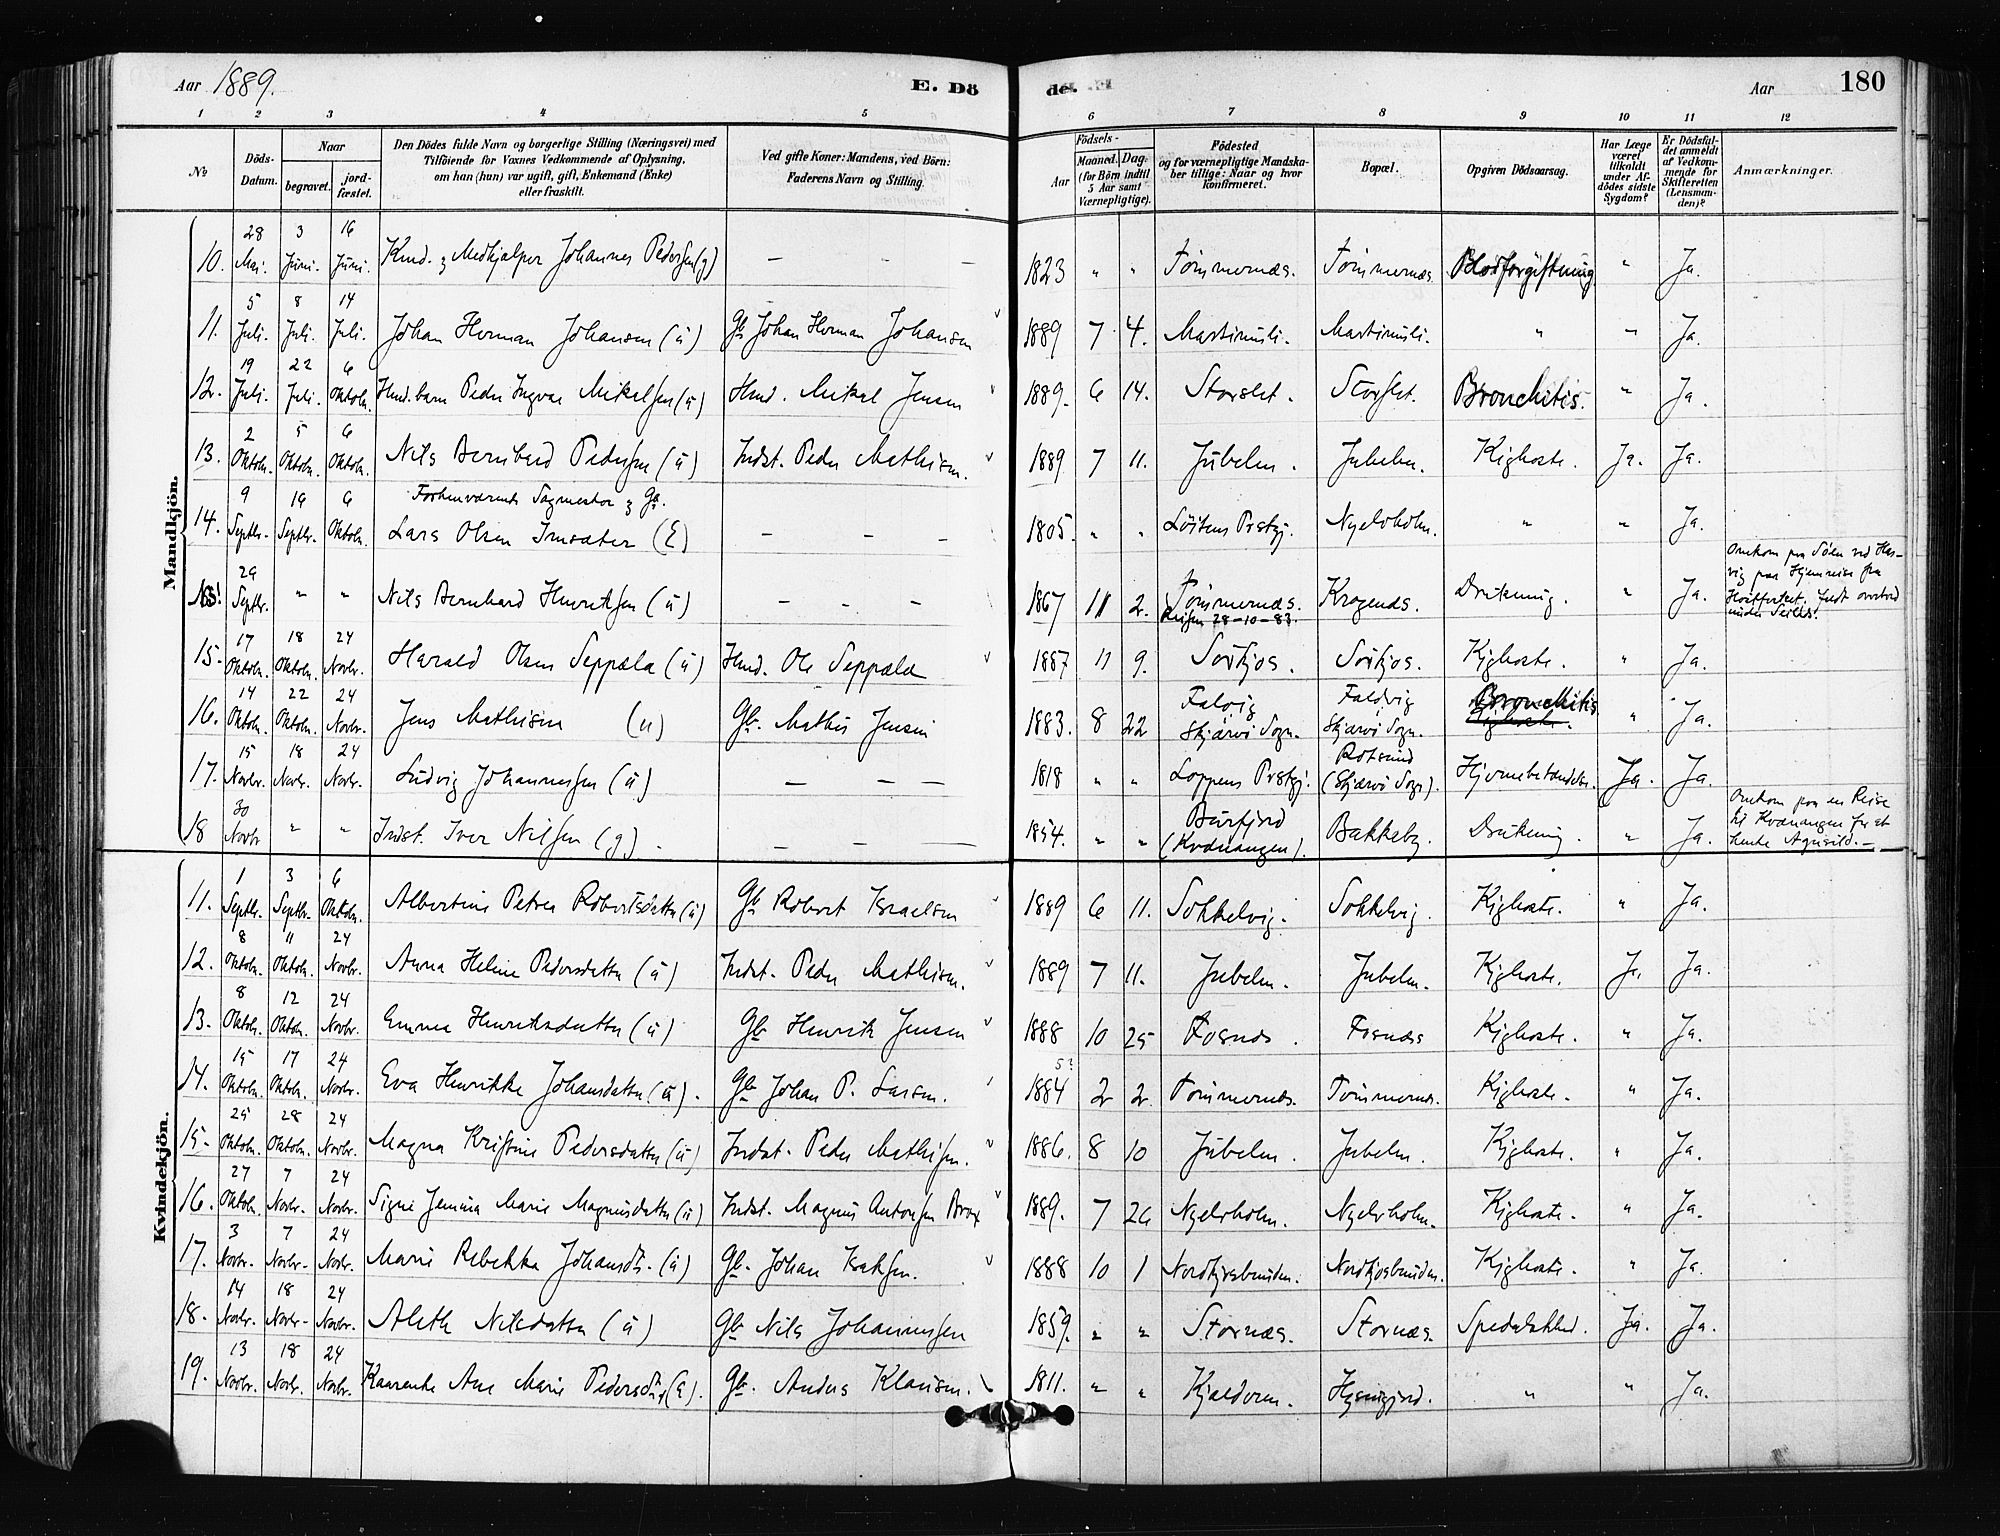 Aar 1889.
E. Dö
de.
Aar
180
1 2 3 4 5 6 7 8 9 10 11 12
№
Döds-Datum.
Naar
begravet.
jord-fæstet.
Den Dödes fulde Navn og borgerlige Stilling (Næringsvei) med
Tilföiende for Voxnes Vedkommende af Oplysning,
om han (hun) var ugift, gift, Enkemand (Enke)
eller fraskilt.
Ved gifte Koner: Mandens, ved Börn:
Faderens Navn og Stilling.
Födsels-
Aar
Maaned.
Dag.
(for Börn indtil
5 Aar samt
Værnepligtige).
Födested
og for værnepligtige Mandska-
ber tillige: Naar og hvor
konfirmeret.
Bopæl.
Opgiven Dödsaarsag.
Har Læge
været
tilkaldt
under Af-
dödes sidste
Sygdom?
Er Dödsfal-
det anmeldt
af Vedkom-
mende for
Skifteretten
(Lensman-
den)?
Anmærkninger.
Mandkjön.
10. 28 Mai. 3 Juni. 16 Juni. Kmd. & Medhjelper Johannes Pedersen (g) — — — 1823 " " Tömmernæs. Tömmernæs. Blodforgiftning " Ja.
11. 5 Juli. 8 Juli. 14 Juli. Johan Herman Johansen (ú) Gb Johan Herman Johansen 1889 7 4. Martinuli. Martinuli. " " Ja.
12. 19 Juli. 22 Juli. 6 Oktobr. Hmd. barn Peder Ingvar Mikelsen (ú) Hmd. Mikal Jensen 1889. 6 14. Storslet. Storslet. Bronchitis. " Ja.
13. 2 Oktobr. 5 Oktobr. 6 Oktobr. Nils Bernhard Pedersen (ú) Indst. Peder Mathisen. 1889 7 11. Jubelen. Jubelen. Kighoste. Ja. Ja.
14. 9 Septbr. 16 Septbr. 6 Oktobr. Forhenværende Sagmester & Gb. Lars Olsen Imsæter (E) — — — 1805. " " Löitens Prstgj. Nyelvholm. " " Ja.
29 Septbr. " " Nils Bernhard Henriksen (ú) — — — 1867 11 2. Tömmernæs. Reisen 28-10-83. Kragenæs. Drukning. " Ja. Omkom paa Söen ved Hes-
vig paa Hjemreise fra
Höstfisket. Faldt overbord
under Seilas.
15. 17 Oktobr. 18 Oktobr. 24 Novbr. Harald Olsen Seppala (ú) Hmd. Ole Seppala 1887 11 9. Sörkjos. Sörkjos. Kighoste. " Ja.
16. 14 Oktobr. 22 Oktobr. 24 Novbr. Jens Mathisen (u) Gb. Mathis Jensen 1883. 8 22 Falvig Skjærvö Sogn. Faldvig Skjærvö Sogn. Bronchitis " Ja.
17. 15 Novbr. 18 Novbr. 24 Novbr. Ludvig Johannessen (ú) — — — 1818 " " Loppens Prstgj. Rotsund (Skjærvö Sogn). Hjernebetændelse. Ja. Ja.
18 30 Novbr " " Indst. Iver Nilsen (g). — — — 1854. " " Burfjord (Kvænangen). Bakkeby. Drukning. " Ja. Omkom paa en Reise
til Kvænangen for at
hente Agnsild. —
Kvindekjön.
11. 1 Septbr. 3 Septbr. 6 Oktobr. Albertine Petrea Robertsdatter (ú) Gb Robert Israelsen 1889 6 11. Sokkelvig. Sokkelvig. Kighoste. " Ja.
12. 8 Oktobr. 11 Oktobr. 24 Novbr. Anna Heline Pedersdatter (ú) Indst. Peder Mathisen. 1889 7 11. Jubelen. Jubelen. Kighoste. Ja. Ja.
13. 8 Oktobr. 12 Oktobr. 24 Novbr. Emma Henriksdatter (ú) Gb Henrik Jensen 1888 10 25 Fosnæs. Fosnæs Kighoste. " Ja.
14. 15 Oktobr. 17 Oktobr. 24 Novbr. Eva Henrikke Johansdatter (ú). Gb Johan P. Larsen. 1884 5? 2 2. Tömmernæs. Tömmernæs. Kighoste. " Ja.
15. 25 Oktobr. 28 Oktobr. 24 Novbr. Magna Kristine Pedersdatter (ú) Indst. Peder Mathisen. 1886. 8 10 Jubelen. Jubelen. Kighoste. " Ja.
16. 27 Oktobr. 7 Novbr. 24 Novbr. Signe Jemina Marie Magnusdatter (ú) Indst. Magnus Antonsen Brox 1889. 7 26 Nyelvholm. Nyelvholm. Kighoste. " Ja.
17. 3 Novbr. 7 Novbr. 24 Novbr. Marie Rebekka Johansdtr. (ú) Gb. Johan Isaksen. 1888 10 1 Nordkjosbunden. Nordkjosbunden. Kighoste. " Ja.
18. 14 Novbr. 18 Novbr. 24 Novbr. Aleth Nilsdatter (ú) Gb Nils Johannessen 1859. " " Stornæs. Stornæs. Spedalskhed. Ja. Ja.
19. 13 Novbr. 18 Novbr. 24 Novbr. Kaarenke Ane Marie Pedersdtr (E). Gb. Anders Klausen. 1811. " " Kjelderen. " " Ja.